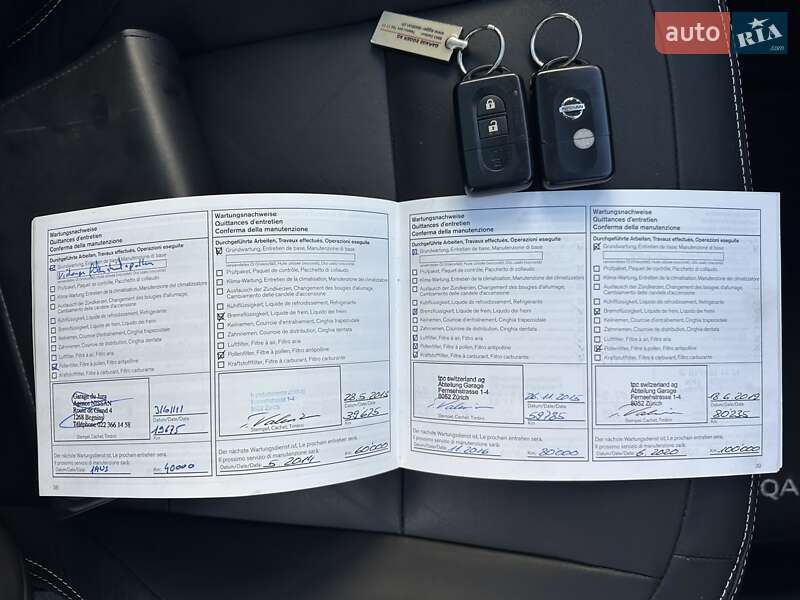 auto RIA
.com
GARAGE EGGER AG
NISSAN
Wartungsnachweise
Quittances d'entretien
Conferma della manutenzione
Durchgeführte Arbeiten, Travaux effectués, Operazioni eseguite
Grundwartung, Entretien de base, Manutenzione di base
Prüfpaket, Paquet de contrôle, Pacchetto di collaudo
Klima-Wartung, Entretien de la climatisation, Manutenzione del climatizzatore
Austausch der Zündkerzen, Changement des bougies d'allumage,
Cambiamento delle candele d'accensione
Kühlflüssigkeit, Liquide de refroidissement, Refrigerante
Bremsflüssigkeit, Liquide de frein, Liquido dei freni
Keilriemen, Courroie d'entraînement, Cinghia trapezoidale
Zahnriemen, Courroie de distribution, Cinghia dentata
Luftfilter, Filtre à air, Filtro aria
Pollenfilter, Filtre à pollen, Filtro antipolline
Kraftstofffilter, Filtre à carburant, Filtro carburante
Garage du Jura
Agence NISSAN
Route de Grand 4
1268 Begnins
Téléphone 022 366 14 58
Datum/Date/Data
19675
Km
Stempel, Cachet, Timbro
Der nächste Wartungsdienst ist, Le prochain entretien sera,
Il prossimo servizio di manutenzione sarà:
Datum/Date/Data:
Km: 40000
38
Wartungsnachweise
Quittances d'entretien
Conferma della manutenzione
Durchgeführte Arbeiten, Travaux effectués, Operazioni eseguite
Grundwartung, Entretien de base, Manutenzione di base
Prüfpaket, Paquet de contrôle, Pacchetto di collaudo
Klima-Wartung, Entretien de la climatisation, Manutenzione del climatizzatore
Austausch der Zündkerzen, Changement des bougies d'allumage,
Cambiamento delle candele d'accensione
Kühlflüssigkeit, Liquide de refroidissement, Refrigerante
Bremsflüssigkeit, Liquide de frein, Liquido dei freni
Keilriemen, Courroie d'entraînement, Cinghia trapezoidale
Zahnriemen, Courroie de distribution, Cinghia dentata
Luftfilter, Filtre à air, Filtro aria
Pollenfilter, Filtre à pollen, Filtro antipolline
Kraftstofffilter, Filtre à carburant, Filtro carburante
8052 Zürich
Datum/Date/Data
39625
Km
Stempel, Cachet, Timbro
Der nächste Wartungsdienst ist, Le prochain entretien sera,
Il prossimo servizio di manutenzione sarà:
Datum/Date/Data: 5. 2014
Km: 60'000
Wartungsnachweise
Quittances d'entretien
Conferma della manutenzione
Durchgeführte Arbeiten, Travaux effectués, Operazioni eseguite
Grundwartung, Entretien de base, Manutenzione di base
Prüfpaket, Paquet de contrôle, Pacchetto di collaudo
Klima-Wartung, Entretien de la climatisation, Manutenzione del climatizzatore
Austausch der Zündkerzen, Changement des bougies d'allumage,
Cambiamento delle candele d'accensione
Kühlflüssigkeit, Liquide de refroidissement, Refrigerante
Bremsflüssigkeit, Liquide de frein, Liquido dei freni
Keilriemen, Courroie d'entraînement, Cinghia trapezoidale
Zahnriemen, Courroie de distribution, Cinghia dentata
Luftfilter, Filtre à air, Filtro aria
Pollenfilter, Filtre à pollen, Filtro antipolline
Kraftstofffilter, Filtre à carburant, Filtro carburante
tpc switzerland ag
Abteilung Garage
Fernsehstrasse 1-4
8052 Zürich
26.11.2015
Datum/Date/Data
59785
Km
Stempel, Cachet, Timbro
Der nächste Wartungsdienst ist, Le prochain entretien sera,
Il prossimo servizio di manutenzione sarà:
Datum/Date/Data: 11.2016
Km: 80'000
Wartungsnachweise
Quittances d'entretien
Conferma della manutenzione
Durchgeführte Arbeiten, Travaux effectués, Operazioni eseguite
Grundwartung, Entretien de base, Manutenzione di base
Prüfpaket, Paquet de contrôle, Pacchetto di collaudo
Klima-Wartung, Entretien de la climatisation, Manutenzione del climatizzatore
Austausch der Zündkerzen, Changement des bougies d'allumage,
Cambiamento delle candele d'accensione
Kühlflüssigkeit, Liquide de refroidissement, Refrigerante
Bremsflüssigkeit, Liquide de frein, Liquido dei freni
Keilriemen, Courroie d'entraînement, Cinghia trapezoidale
Zahnriemen, Courroie de distribution, Cinghia dentata
Luftfilter, Filtre à air, Filtro aria
Pollenfilter, Filtre à pollen, Filtro antipolline
Kraftstofffilter, Filtre à carburant, Filtro carburante
tpc switzerland ag
Abteilung Garage
Fernsehstrasse 1-4
8052 Zürich
Datum/Date/Data
80235
Km
Stempel, Cachet, Timbro
Der nächste Wartungsdienst ist, Le prochain entretien sera,
Il prossimo servizio di manutenzione sarà:
Datum/Date/Data: 6. 2020
Km: 100'000
39
QA